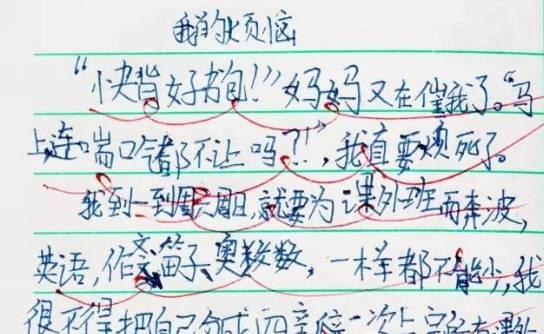 我的烦恼
“快背好书包!”妈妈又在催我了。“马
上,连喘口气都不让吗?!”,我真要烦死了。
我到一到周六周日,就要为课外班而奔波,
英语,作文,笛子,奥数,一样都不能少,我
很不得把自己